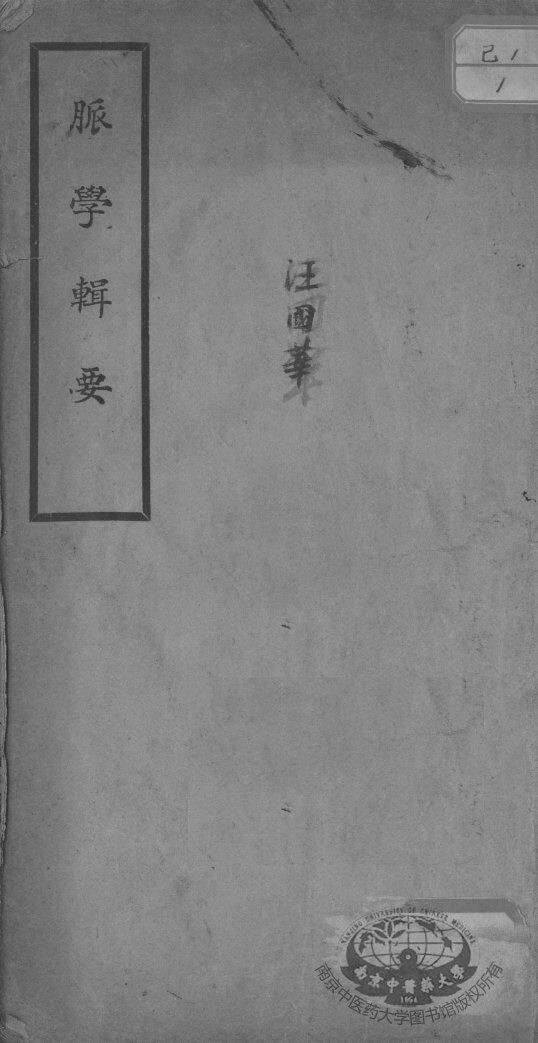 脈學輯要
汪國華
己1
1
NANJING UNIVERSITY OF CHINESE MEDICINE
南京中醫藥大學
1954
南京中医药大学图书馆版权所有